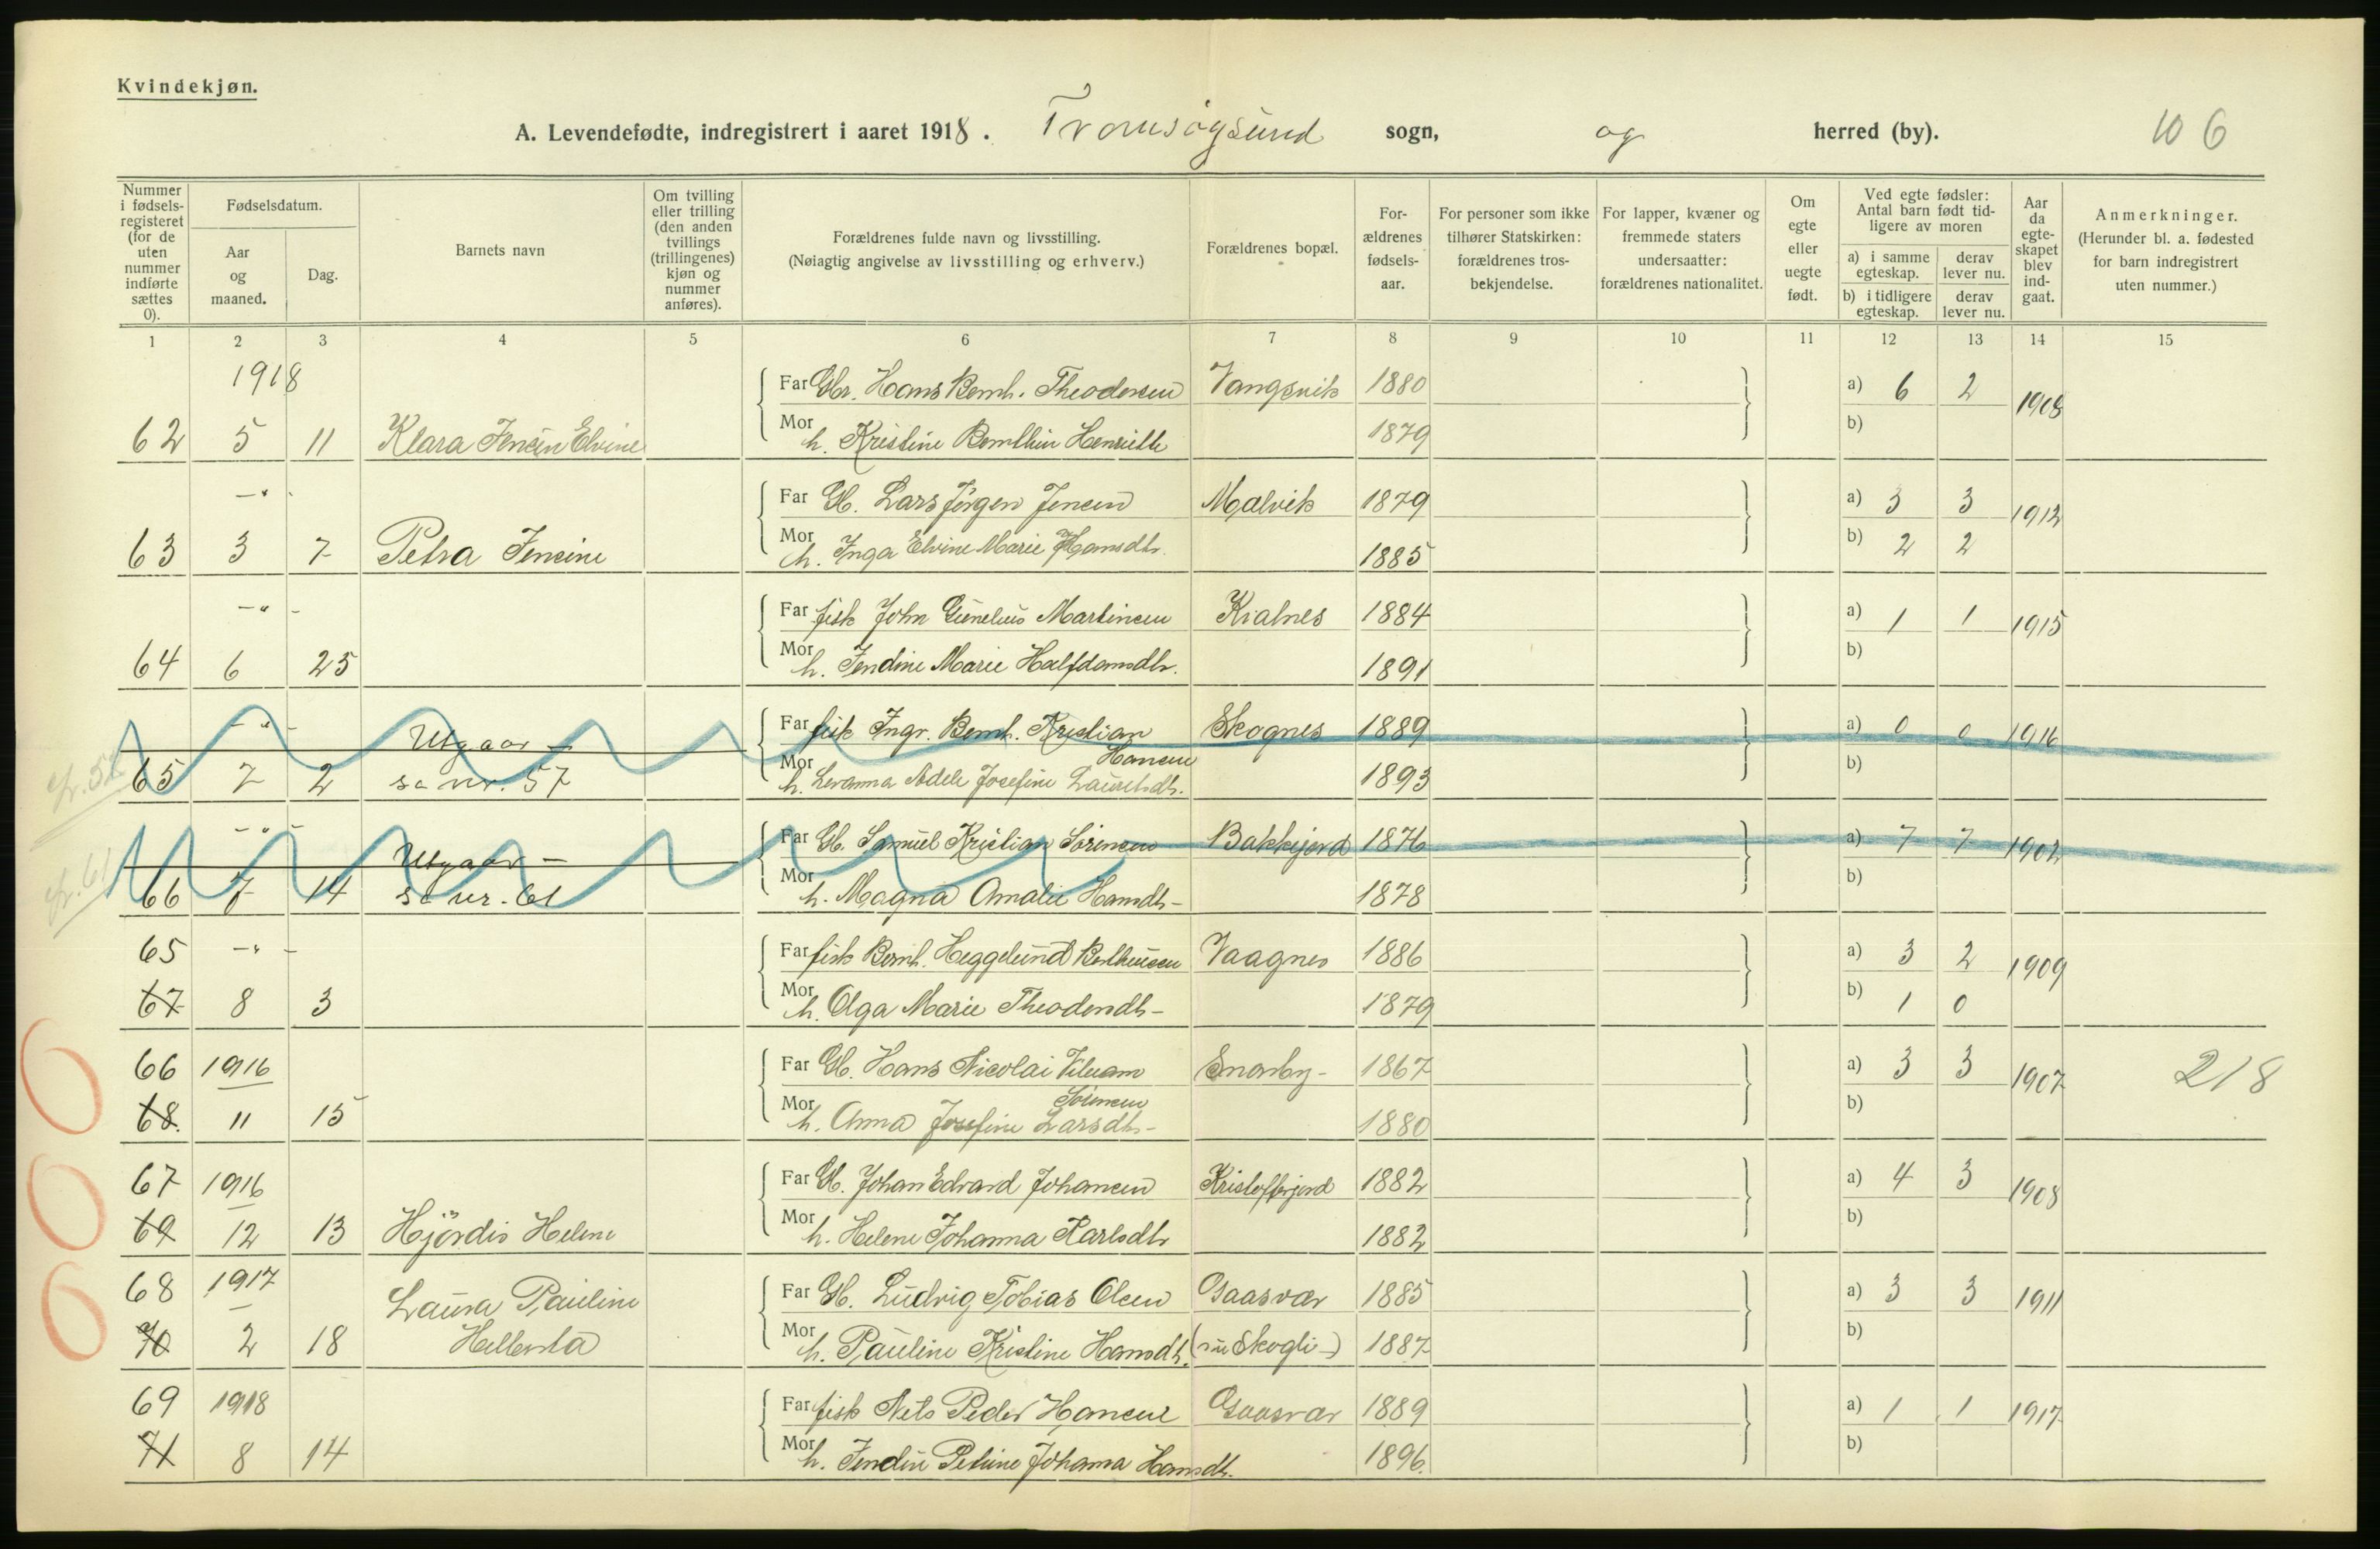 Kvindekjøn.
A. Levendefødte, indregistrert i aaret 1918. Tromsøysund sogn, og herred (by). 106
Nummer i fødsels-registeret (for de uten nummer indførte sættes 0).
Fødselsdatum.
Aar og maaned.
Dag.
Barnets navn
Om tvilling eller trilling (den anden tvillings (trillingenes) kjøn og nummer anføres).
Forældrenes fulde navn og livsstilling.
(Nøiagtig angivelse av livsstilling og erhverv.)
Forældrenes bopæl.
For-ældrenes fødsels-aar.
For personer som ikke tilhører Statskirken: forældrenes tros-bekjendelse.
For lapper, kvæner og fremmede staters undersaatter: forældrenes nationalitet.
Om egte eller uegte født.
Ved egte fødsler: Antal barn født tid-ligere av moren
a) i samme egteskap. derav lever nu.
b) i tidligere egteskap. derav lever nu.
Aar da egte-skapet blev ind-gaat.
Anmerkninger.
(Herunder bl. a. fødested for barn indregistrert uten nummer.)
1 2 3 4 5 6 7 8 9 10 11 12 13 14 15
1918 Far Gbr. Hans Bernh. Theodorsen Vangsvik 1880 a) 6 2 1908
62 5 11 Klara Jensin Elvine Mor h. Kristine Henriette 1879 b)
-"- Far Gb. Lars Jörgen Jensen Malvik 1879 a) 3 3 1912
63 3 7 Petra Jensine Mor h. Inga Elvine Marie Hansdtr. 1885 b) 2 2
-"- Far fisk John Martinsen 1884 a) 1 1 1915
64 6 25 Mor h. Jendine Marie Halfdansdtr. 1891 b)
-"- Utgaar - Far fisk Ingv. Bernh. Kristian Skognes 1889 a) 0 0 1916
Hansen
fr. 57 65 7 2 se nr. 57 Mor h. Levanna Adele Josefine Lauritsdtr. 1893 b)
-"- Utgaar - Far Gb. Samuel Kristian Sörensen Bakkejord 1876 a) 7 7 1902
fr. 61 66 7 14 se nr. 61 Mor h. Magna Amalie Hansdtr- 1878 b)
65 -"- Far fisk Bernh. Heggelund Bertheusen Vaagnes 1886 a) 3 2 1909
67 8 3 Mor h. Olga Marie 1879 b) 1 0
66 1916 Far Gb. Hans Nicolai Snarby- 1867 a) 3 3 1907 218
Sörensen
68. 11 15 Mor h. Anna Josefine Larsdtr- 1880 b)
67 1916 Far Gb. Johan Edvard Johansen Kristofferjord 1882 a) 4 3 1908
69 12 13 Hjördis Helene Mor h. Helene Johanna Karlsdtr 1882 b)
68 1917 Laura Pauline Far Gb. Ludvig Tobias Olsen Gaasvær 1885 a) 3 3 1911
70 2 18 Mor h. Pauline Kristine Hansdtr. (nu Skogli-) 1887 b)
69 1918 Far fisk Nils Peder Hansen Gaasvær 1889 a) 1 1 1917
71 8 14 Mor h. Petrine Johanna Hansdtr. 1896. b)
000